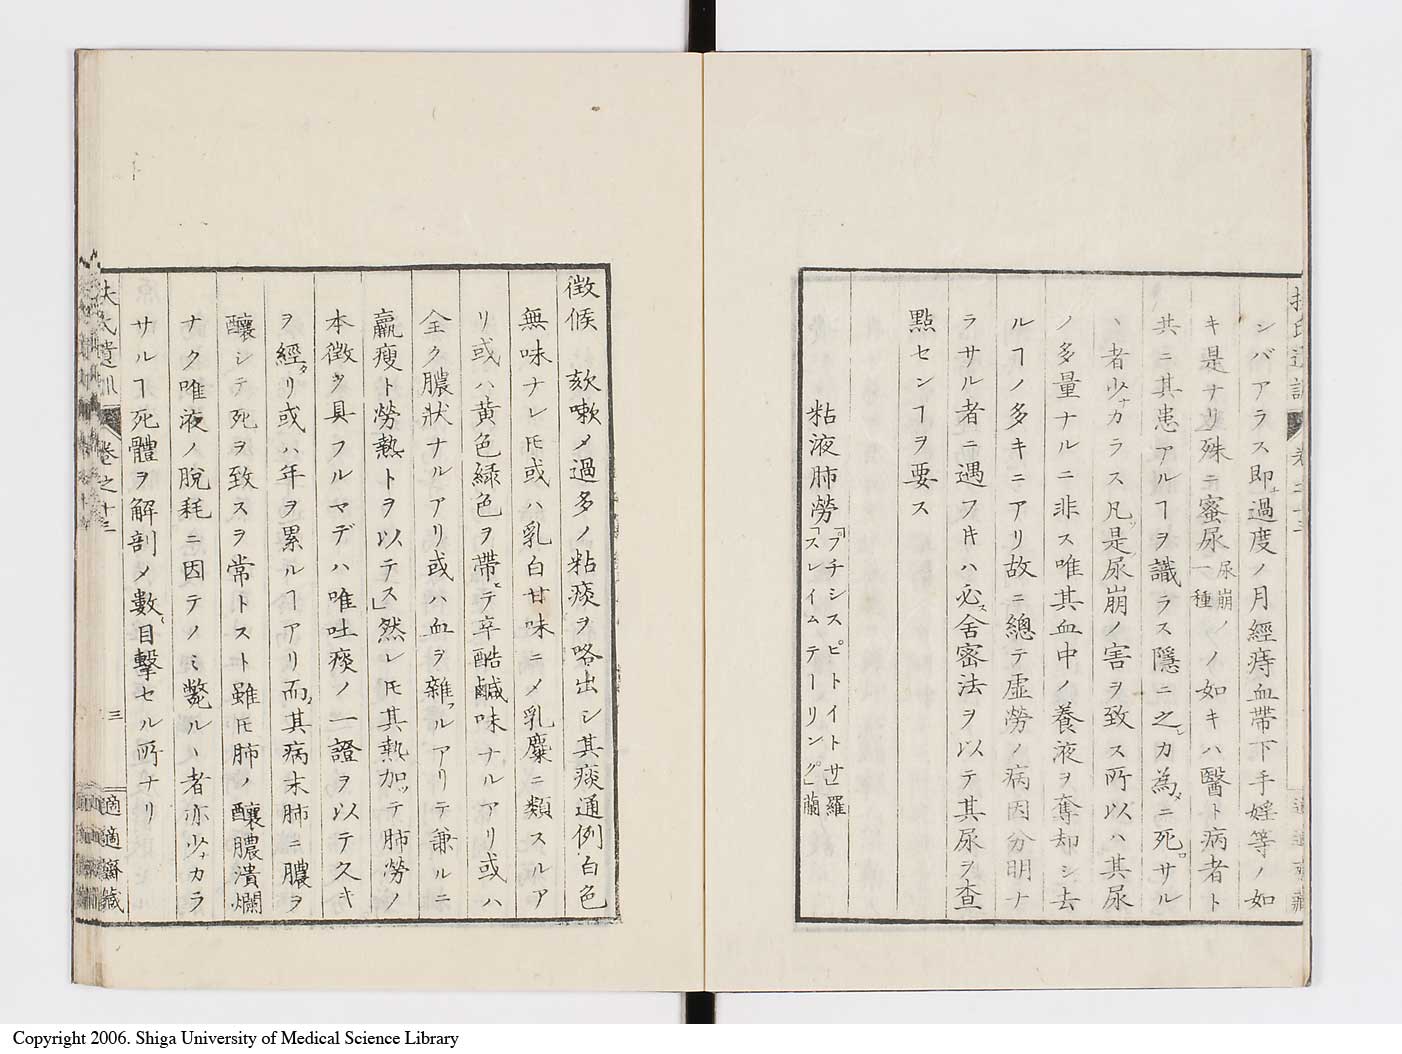 シバアラス即ナ過度ノ月經痔血帶下手婬等ノ如
キ是ナリ殊ニ蜜尿尿崩一種ノ如キハ醫ト病者ト
共ニ其患アルヿヲ識ラス隱ニ之カ為メニ死サル
ヽ者少ナカラス凡ソ是尿崩ノ害ヲ致ス所以ハ其尿
ノ多量ナルニ非ス唯其血中ノ養液ヲ奪却シ去
ルヿノ多キニアリ故ニ總テ虚勞ノ病因分明ナ
ラサル者ニ遇フ片ハ必ス舍密法ヲ以テ其尿ヲ査
點センヿヲ要ス
粘液肺勞「プチシスピトイトサ」羅「スレイムテーリング」蘭
徴候 欬嗽〆過多ノ粘痰ヲ咯出シ其痰通例白色
無味ナレ𪜈或ハ乳白甘味ニ〆乳糜ニ類スルア
リ或ハ黄色緑色ヲ帶ヒテ辛酷鹹味ナルアリ或ハ
全ク膿狀ナルアリ或ハ血ヲ雜フルアリテ兼ルニ
羸瘦ト勞熱トヲ以テス」然レ𪜈其熱加ハッテ肺勞ノ
本徴ヲ具フルマデハ唯吐痰ノ一證ヲ以テ久キ
ヲ經タリ或ハ年ヲ累ルヿアリ而〆其病末肺ニ膿ヲ
釀シテ死ヲ致スヲ常トスト雖𪜈肺ノ釀膿潰爛
ナク唯液ノ脫耗ニ因テノミ斃ルヽ者亦少ナカラ
サルヿ死體ヲ解剖〆數目擊セル所ナリ
扶氏遺訓 卷之十三 三 適適齋藏